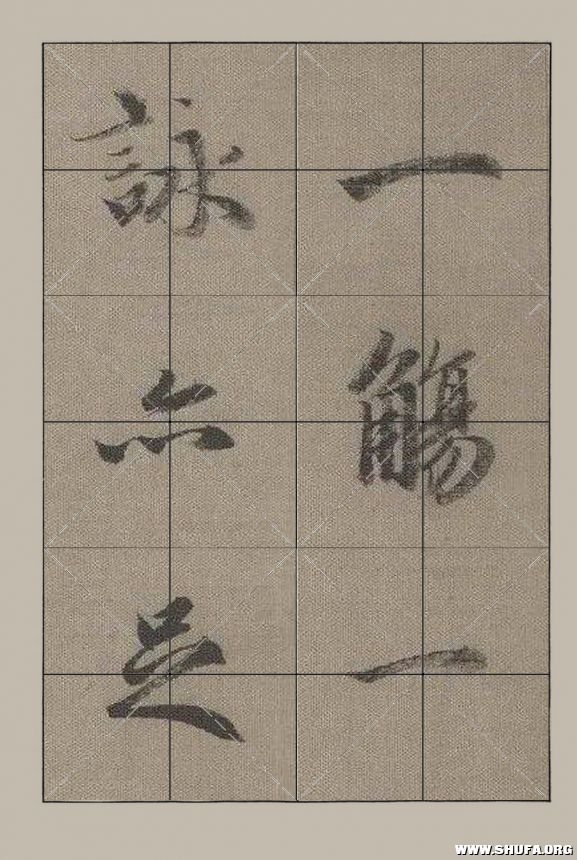 一觴一
詠亦足
WWW.SHUFA.ORG